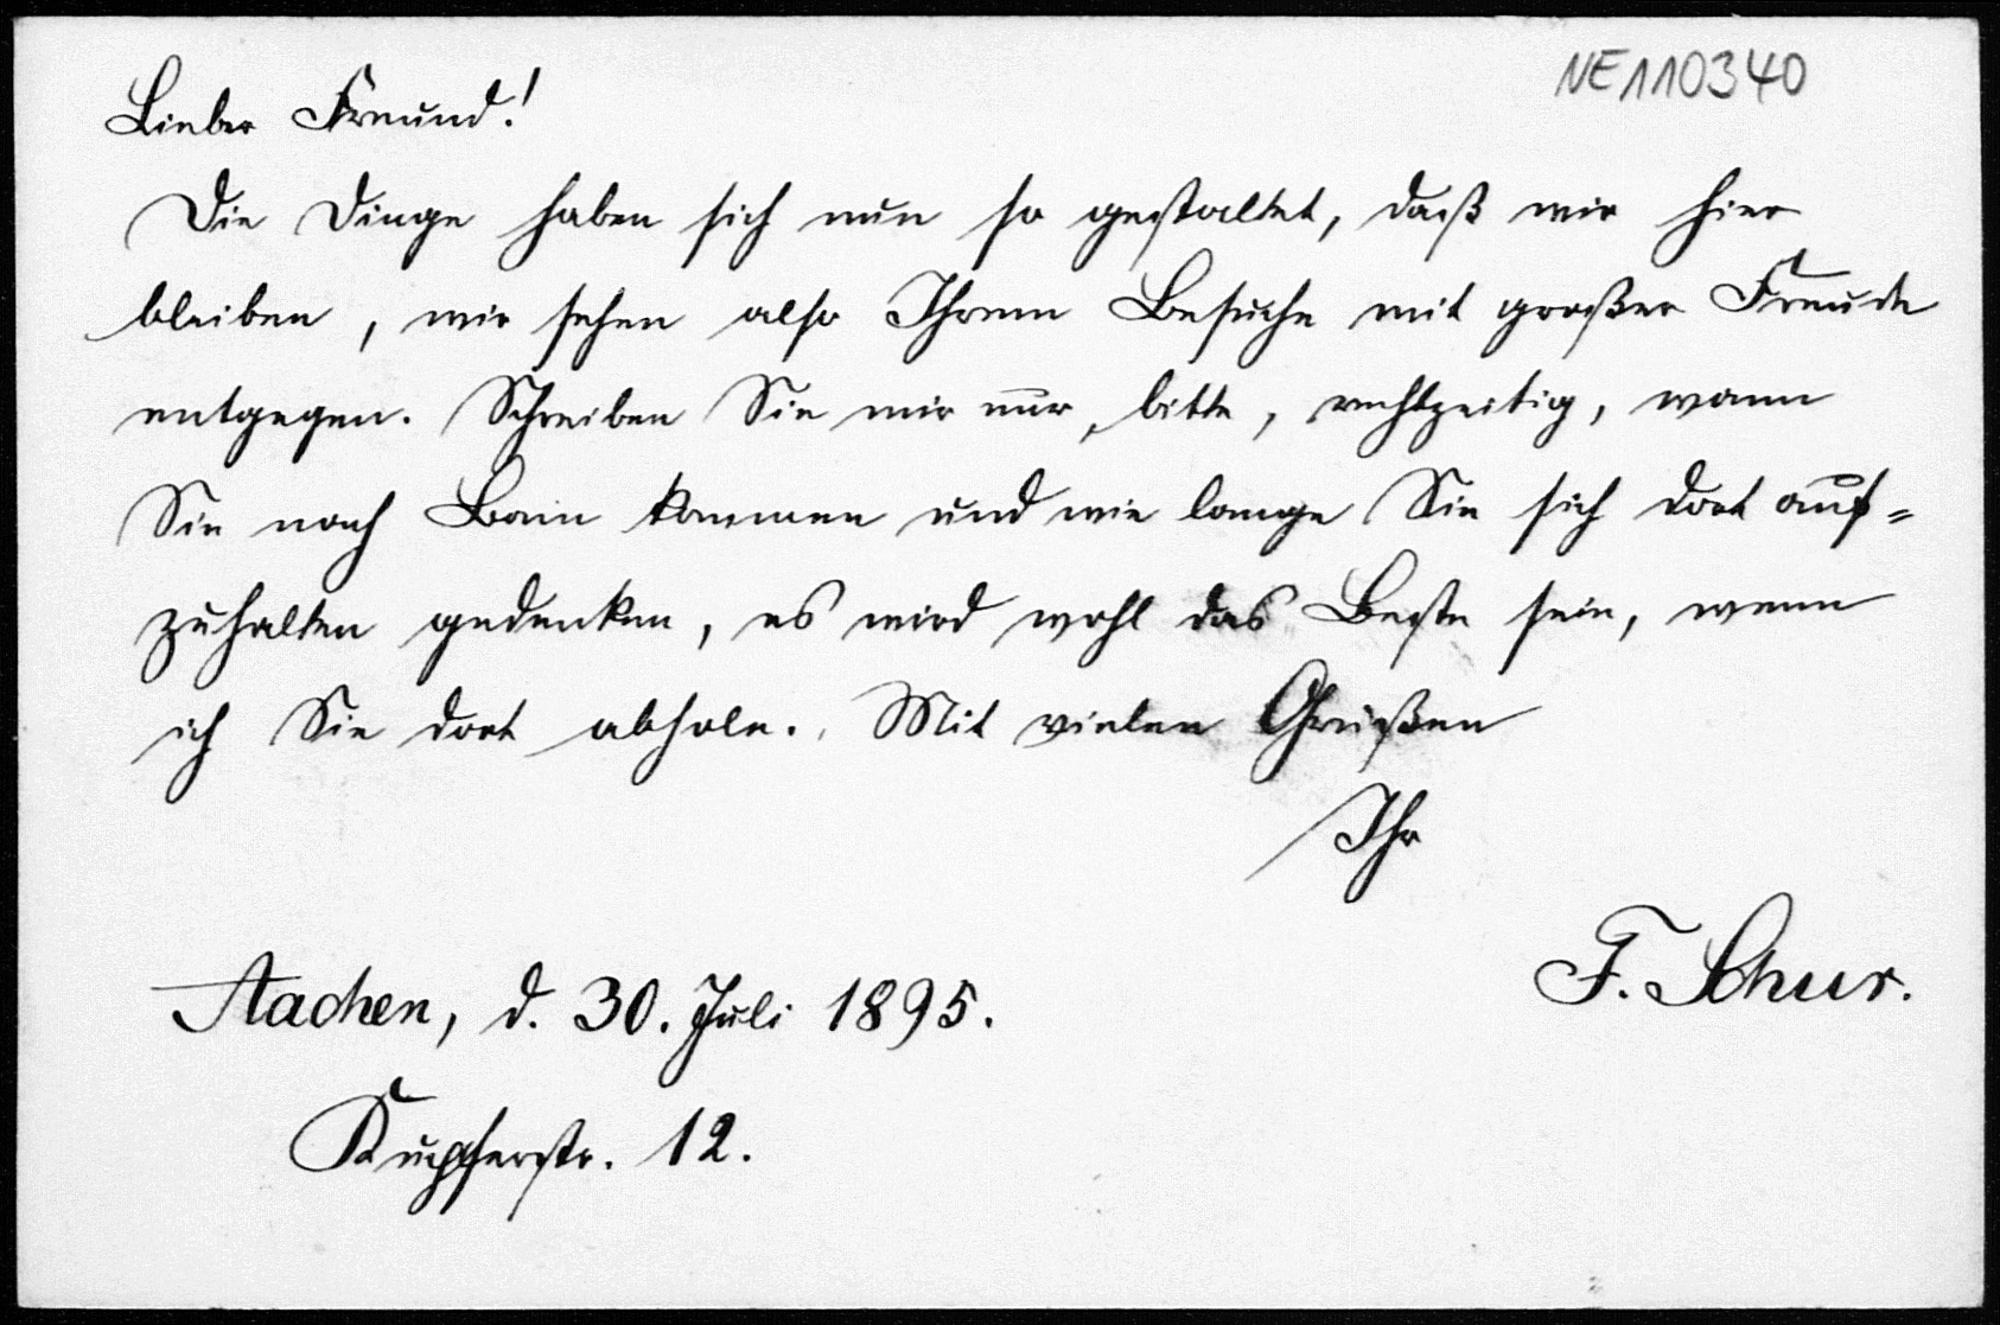 NE110340
Lieber Freund!
Die Dinge haben sich nun so gestaltet, daß wir hier
bleiben, wir sehen also Ihrem Besuche mit großer Freude
entgegen. Schreiben Sie mir nur, bitte, rechtzeitig, wann
Sie nach Bonn kommen und wie lange Sie sich dort auf=
zuhalten gedenken, es wird wohl das Beste sein, wenn
ich Sie dort abhole. Mit vielen Grüßen
Ihr
F. Schur.
Aachen, d. 30. Juli 1895.
Kupferstr. 12.